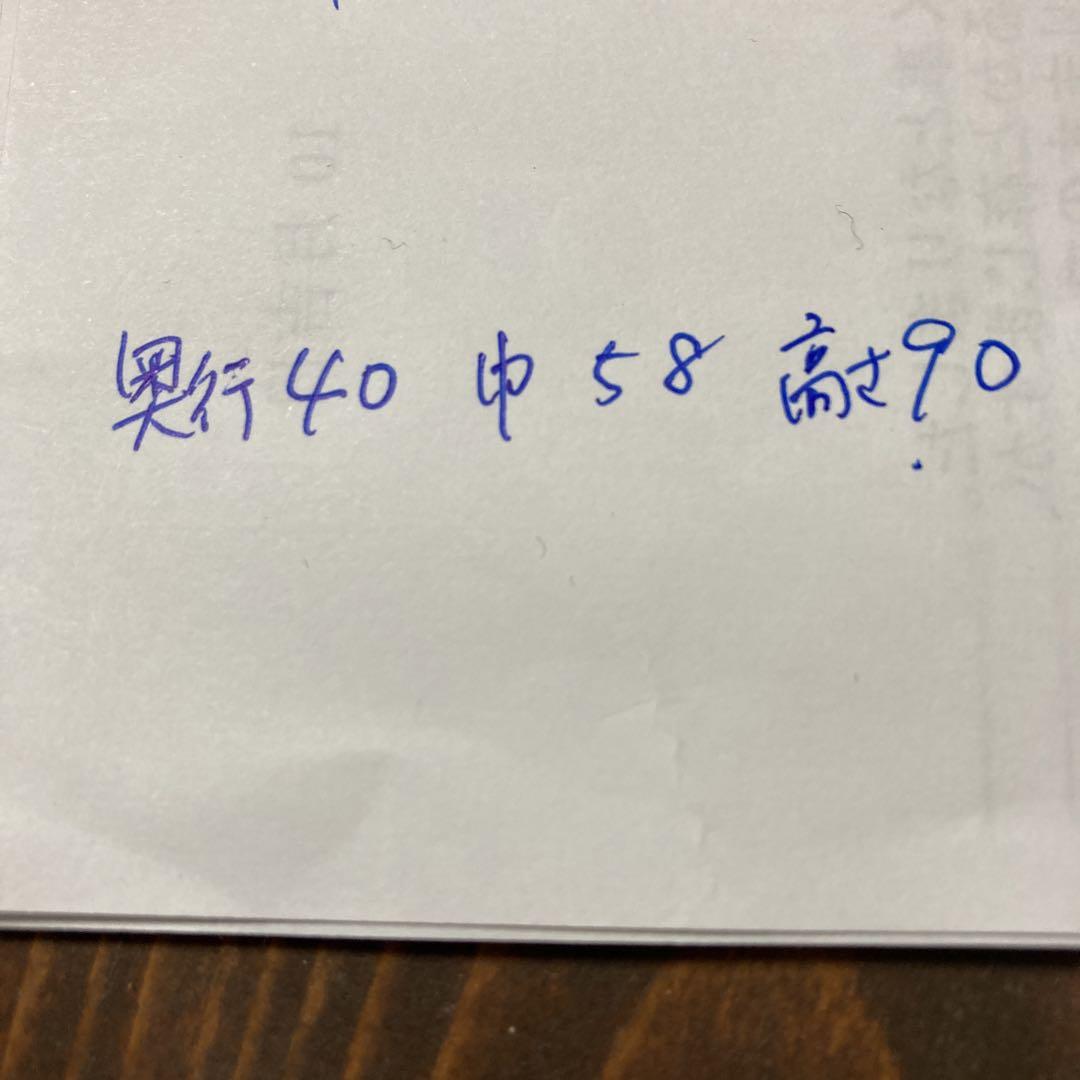 奥行40 巾 58 高さ90